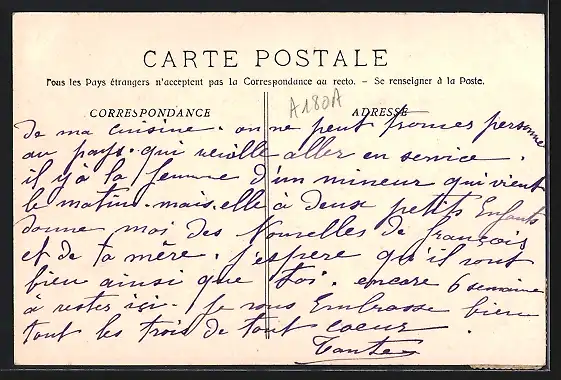 CARTE POSTALE
Tous les Pays étrangers n'acceptent pas la Correspondance au recto. – Se renseigner à la Poste.
A180A
CORRESPONDANCE
ADRESSE
de ma cuisine. on ne peut trouver personne
au pays. qui veuille aller en service.
il y à la femme d'un mineur qui vient
le matin. mais elle à deux petits Enfants
donne moi des Nouvelles de François
et de ta mère. j'espere qu'il vont
bien ainsi que toi. encore 6 semaine
à rester ici.. je vous Embrasse bien
tout les trois de tout coeur
Tante